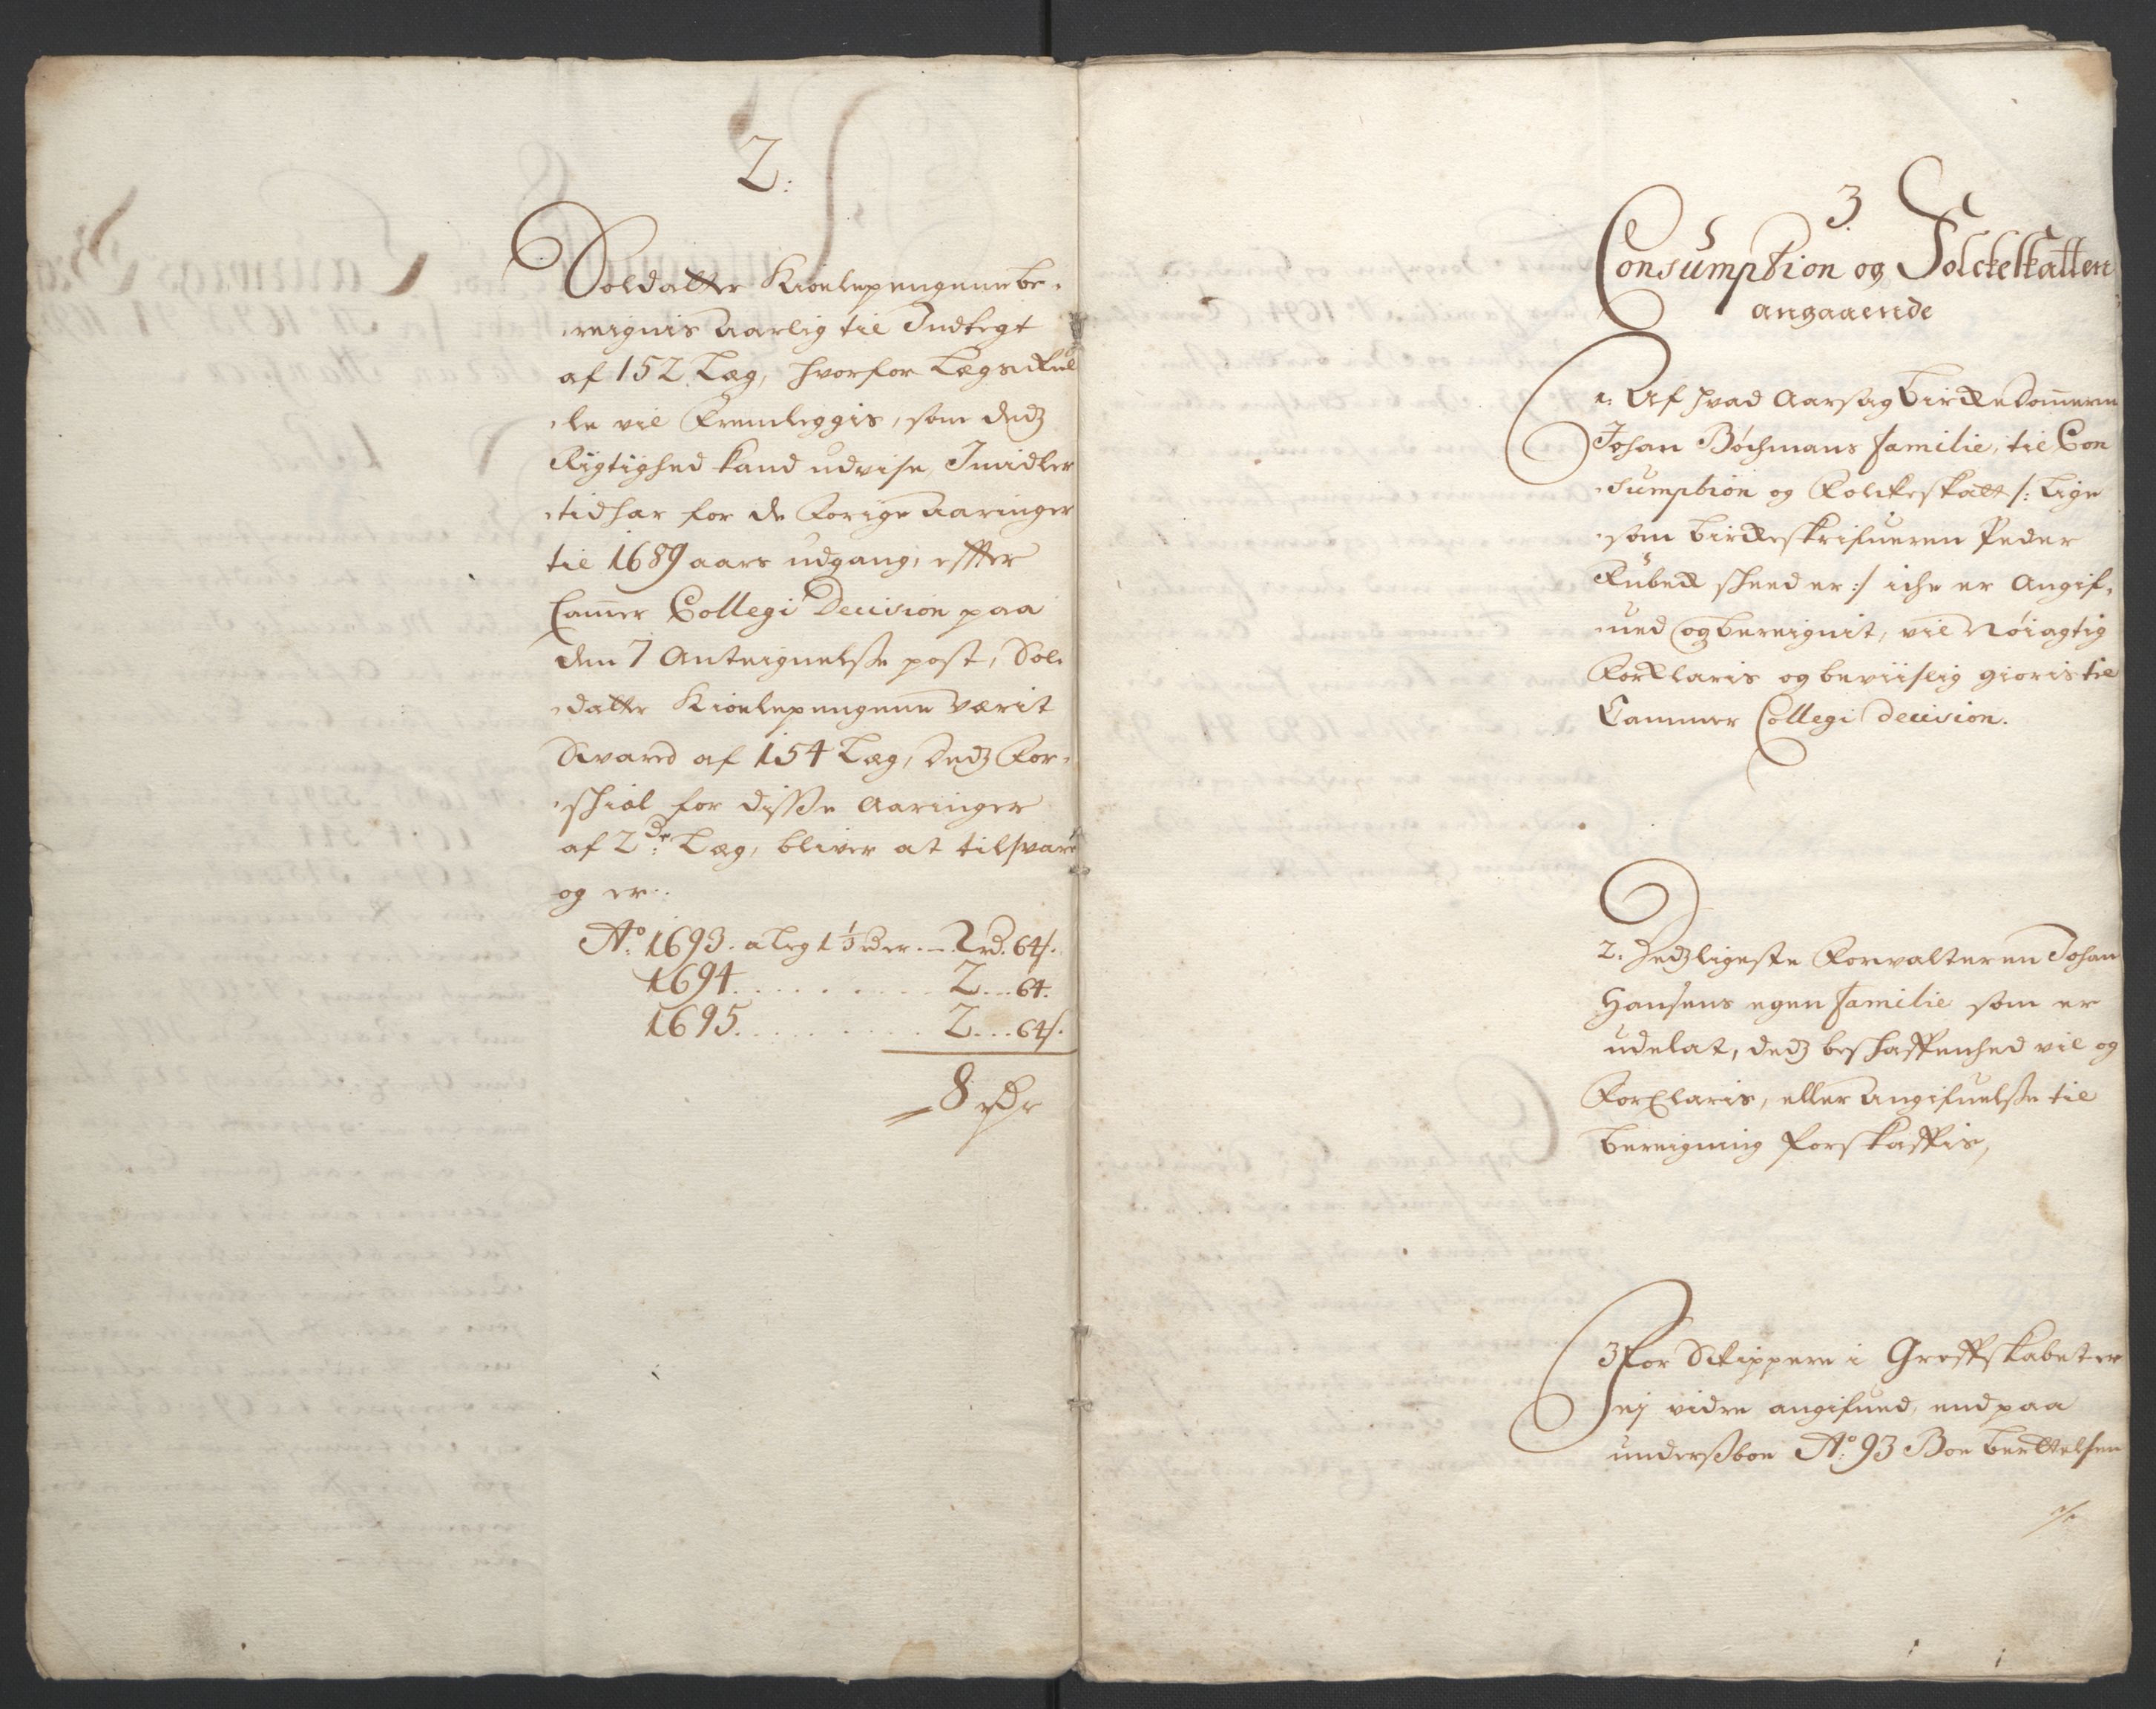 2:
Soldatter Kiolepengene be-
reignis aarlig til Indtegt
af 152 Læg, hvorfor Lægs Rul
le vil Fremleggis, som dedz
Rigtighed kand udvise, Imidler
tid har for de Forige Aaringer
til 1689 aars udgang, effter
Cammer Collegi Decision paa
den 7 Anteignelse post, Sol-
datter Kiolepengene værit
Svared af 154 Læg, dedz For-
schiæl for disse Aaringer
af 2de Læg, bliver at tilsvare
og er:
Ao: 1693. a Leg 1 1/3 rder. — 2 rd. 64 s.
1694. . . . . . . . . 2 . . . 64.
1695. . . . . . . . . 2 . . . 64 s.
8 rdr
3.
Consumption og Folckeskatten
angaaende
1. Af hvad Aarsag birkedommeren
Johan Bøchmans familie, til Con
sumption og Folkeskatt /: Lige
som birkeskrifueren Peder
Rubek skeed er :/ iche er Angif-
ued og bereignit, vil Nøiagtig
Forklaris og beviislig gioris til
Cammer Collegi Decision.
2. Dedzligeste Forvalteren Johan
Hansens egen familie som er
udelat, dedz beskaffenhed vil og
Forklaris, eller Angifuelse til
bereigning forskaffis,
3 For Skippere i Greffskabet er
ej vidre angifued, end paa
Ao: 93 Boe Berttelsen